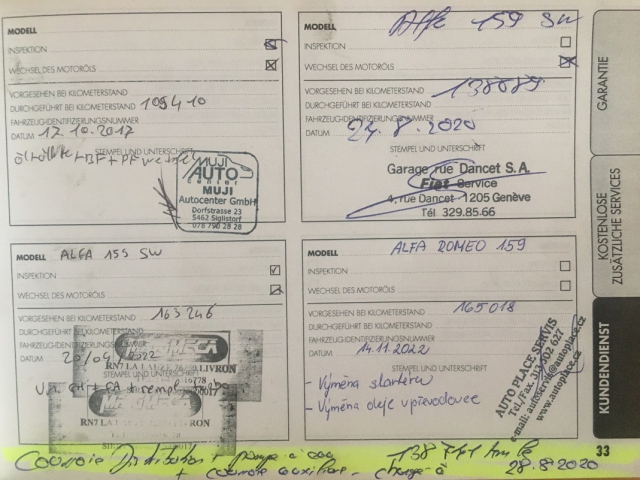 MODELL
INSPEKTION
WECHSEL DES MOTORÖLS
VORGESEHEN BEI KILOMETERSTAND
DURCHGEFÜHRT BEI KILOMETERSTAND 109410
FAHRZEUG-IDENTIFIZIERUNGSNUMMER
DATUM 17.10.2017
STEMPEL UND UNTERSCHRIFT
MUJI
AUTO
center
MUJI
Autocenter GmbH
Dorfstrasse 23
5462 Siglistorf
078 790 28 28
MODELL Alfa 159 SW
INSPEKTION
WECHSEL DES MOTORÖLS
VORGESEHEN BEI KILOMETERSTAND
DURCHGEFÜHRT BEI KILOMETERSTAND
FAHRZEUG-IDENTIFIZIERUNGSNUMMER
DATUM 8.2020
STEMPEL UND UNTERSCHRIFT
Garage rue Dancet S.A.
Fiat Service
4, rue Dancet 1205 Genève
Tél 329.85.66
MODELL ALFA 159 SW
INSPEKTION
WECHSEL DES MOTORÖLS
VORGESEHEN BEI KILOMETERSTAND 163246
DURCHGEFÜHRT BEI KILOMETERSTAND
FAHRZEUG-IDENTIFIZIERUNGSNUMMER
DATUM 20/04/2022
STEMPEL UND UNTERSCHRIFT
MODELL ALFA ROMEO 159
INSPEKTION
WECHSEL DES MOTORÖLS
VORGESEHEN BEI KILOMETERSTAND 165018
DURCHGEFÜHRT BEI KILOMETERSTAND
FAHRZEUG-IDENTIFIZIERUNGSNUMMER
DATUM 14.11.2022
STEMPEL UND UNTERSCHRIFT
- Výměna startéru
- Výměna oleje v převodovce
AUTO PLACE SERVIS
Tel./Fax: 602 627
e-mail: autoservis@autoplace.cz
www.autoplace.cz
Courroie Distribution + pompe à eau 138 771 km le
+ courroie auxiliaire changé à 28.8.2020
GARANTIE
KOSTENLOSE
ZUSÄTZLICHE SERVICES
KUNDENDIENST
33